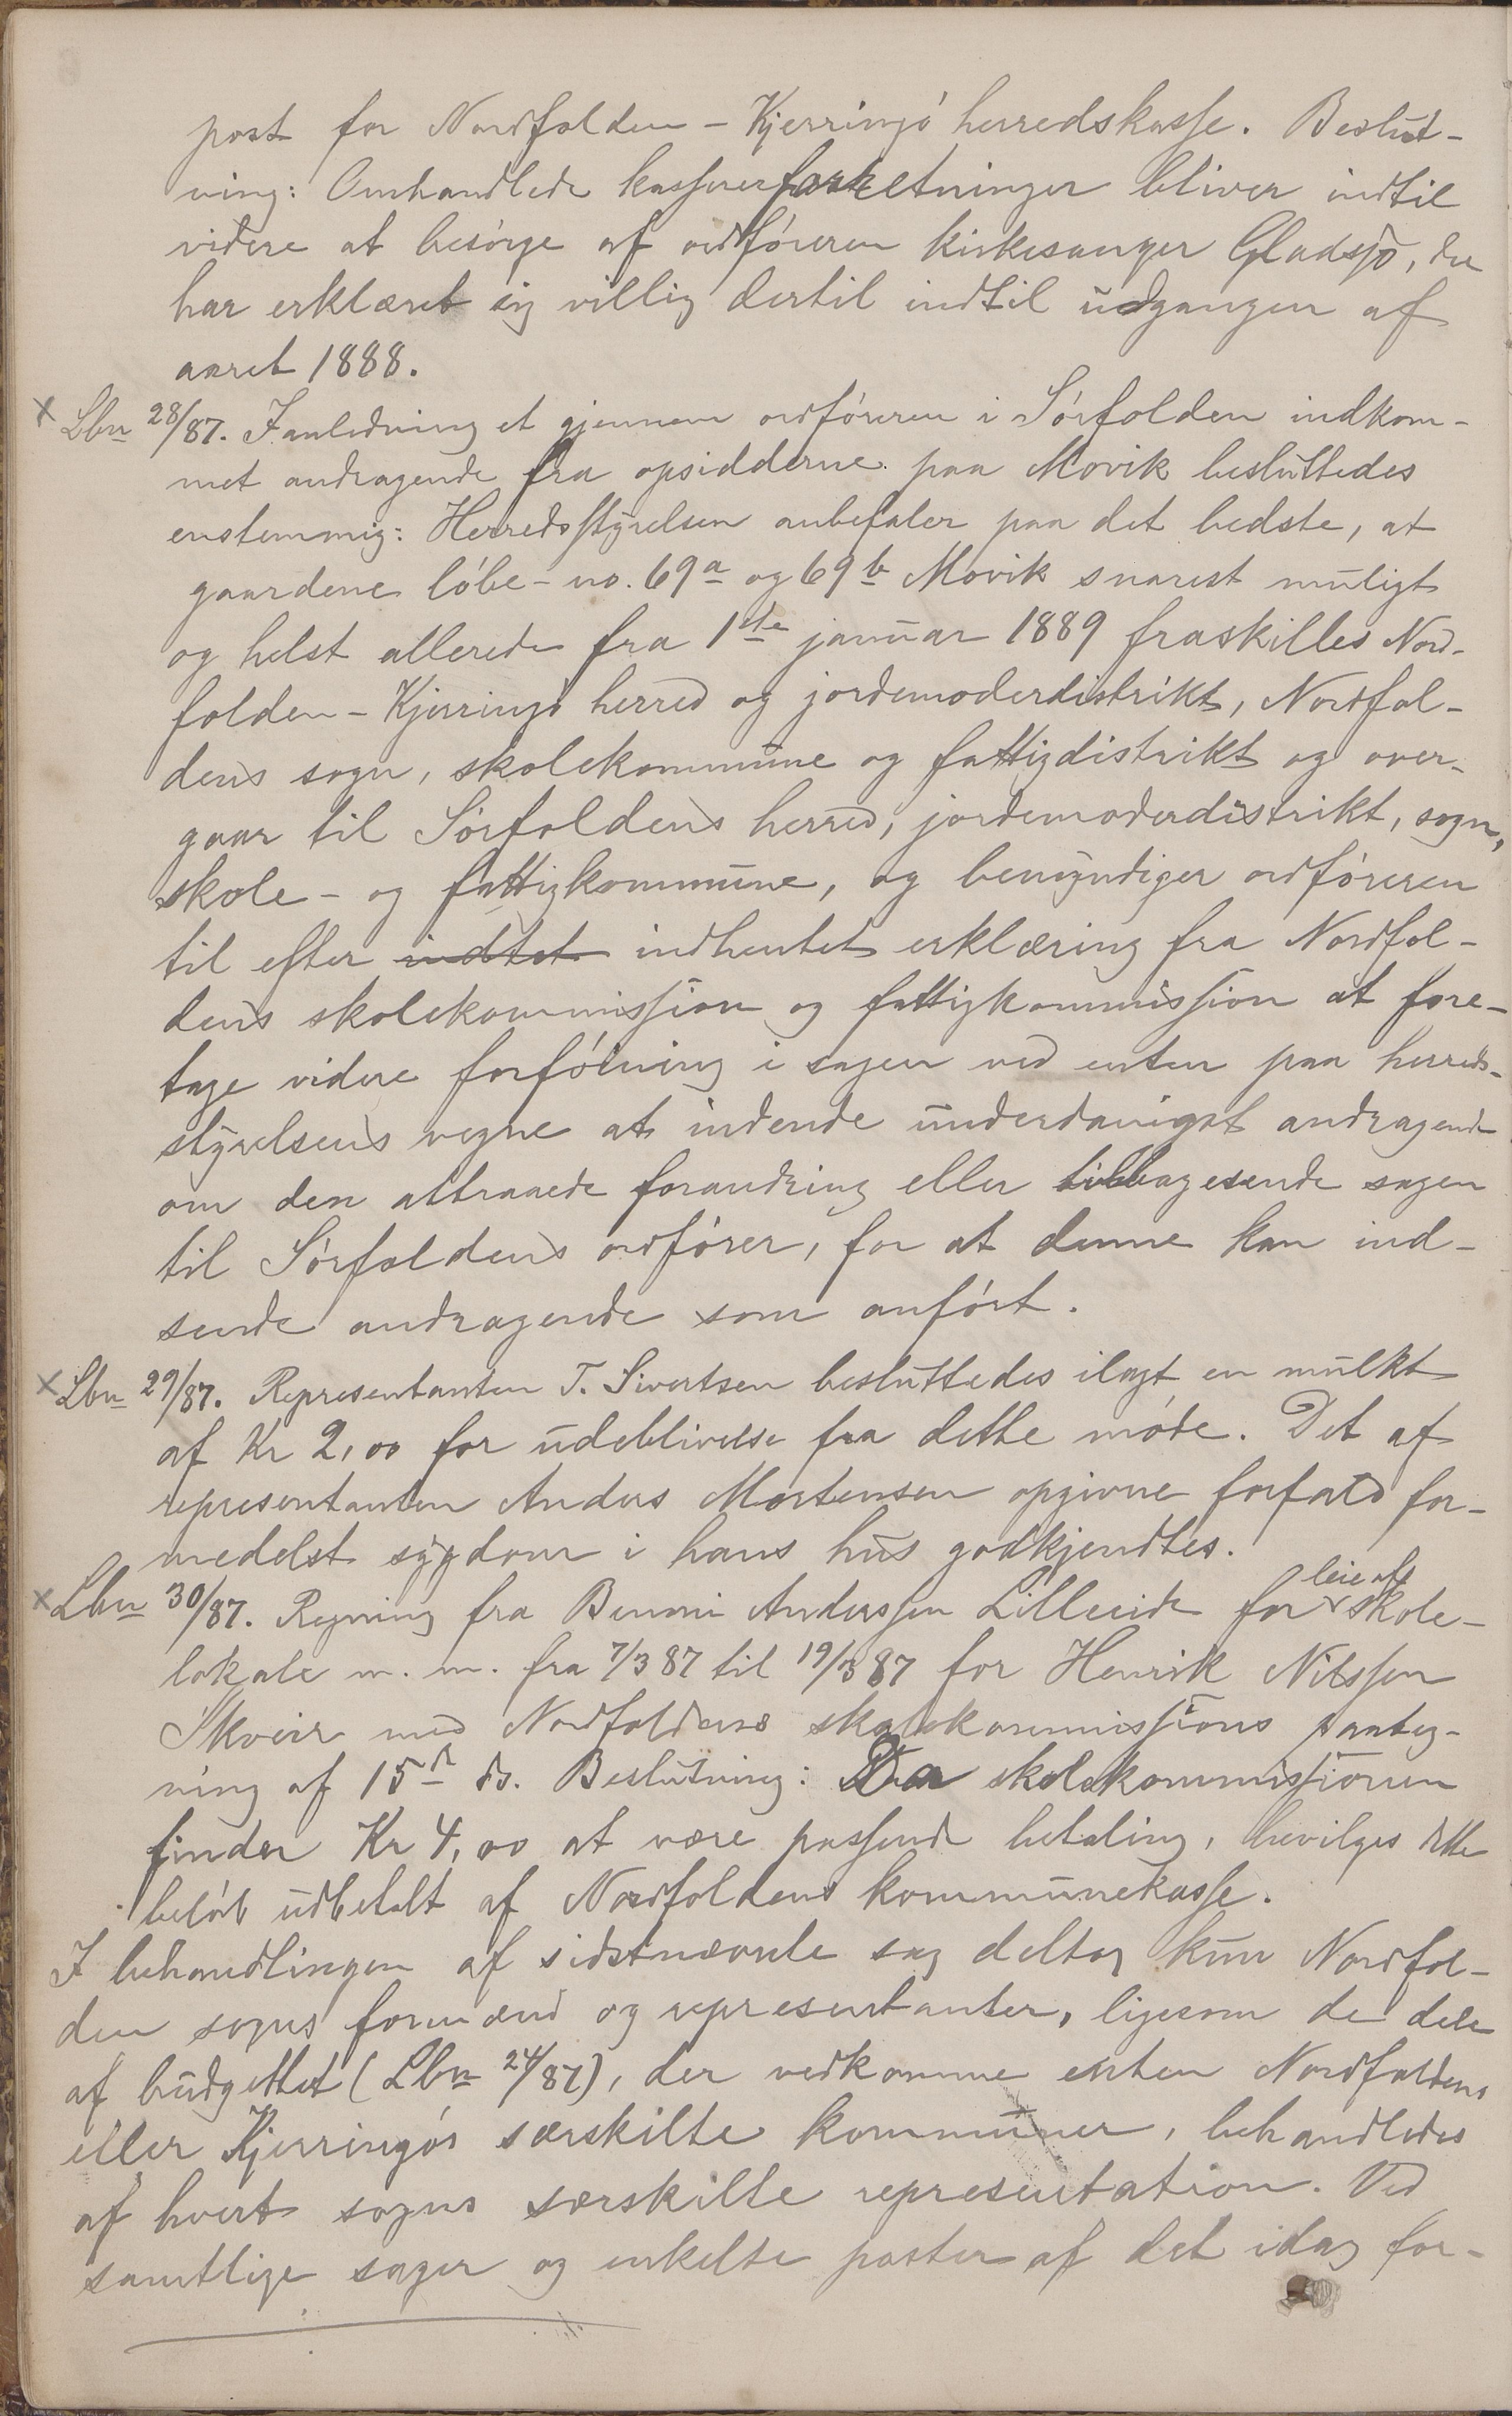 post for Nordfolden - Kjerringö herredskasse. Beslut-
ning: Omhandlede kassererforretninger bliver indtil
videre at besörge af ordföreren kirkesanger Gladsjö, der
har erklæret sig villig dertil indtil udgangen af
aaret 1888.
x Lbn 28/87. I anledning et gjennem ordföreren i Sörfolden indkom-
met andragende fra opsidderne paa Movik besluttedes
enstemmig: Herredsstyrelsen anbefaler paa det bedste, at
gaardene löbe-no. 69a og 69b Movik snarest muligt
og helst allerede fra 1ste januar 1889 fraskilles Nord-
folden-Kjerringö herred og jordemoderdistrikt, Nordfol-
dens sogn, skolekommune og fattigdistrikt og over-
gaar til Sörfoldens herred, jordemoderdistrikt, sogn,
skole- og fattigkommune, og bemyndiger ordföreren
til efter indtet indhentet erklæring fra Nordfol-
dens skolekommission og fattigkommission at fore-
tage videre forfölning i sagen ved enten paa herreds-
styrelsens vegne at indende underdanigst andragende
om den attraaede forandring eller tilbagesende sagen
til Sörfoldens ordförer, for at denne kan ind-
sende andragende som anfört.
x Lbn 29/87. Representanten T. Sivertsen besluttedes ilagt en mulkt
af Kr 2,00 for udeblivelse fra dette möde. Det af
representanten Anders Mortensen opgivne forfald for-
medelst sygdom i hans hus godkjendtes.
x Lbn 30/87. Regning fra Benoni Anderssen Lilleeide for leie af skole-
lokale m. m. fra 7/3 87 til 19/3 87 for Henrik Nilssen
Skveir med Nordfoldens skolekommissions paateg-
ning af 15de ds. Beslutning: Da skolekommissionen
finder Kr 4,00 at være passende betaling, bevilges dette
belöb udbetalt af Nordfoldens kommunekasse.
I behandlingen af sidstnævnte sag deltog kun Nordfol-
den sogns formænd og representanter, ligesom de dele
af budgettet (Lbn 24/87), der vedkomme enten Nordfoldens
eller Kjerringös særskilte kommuner, behandledes
af hvert sogns særskilte representation. Ved
samtlige sager og enkelte poster af det idag for-